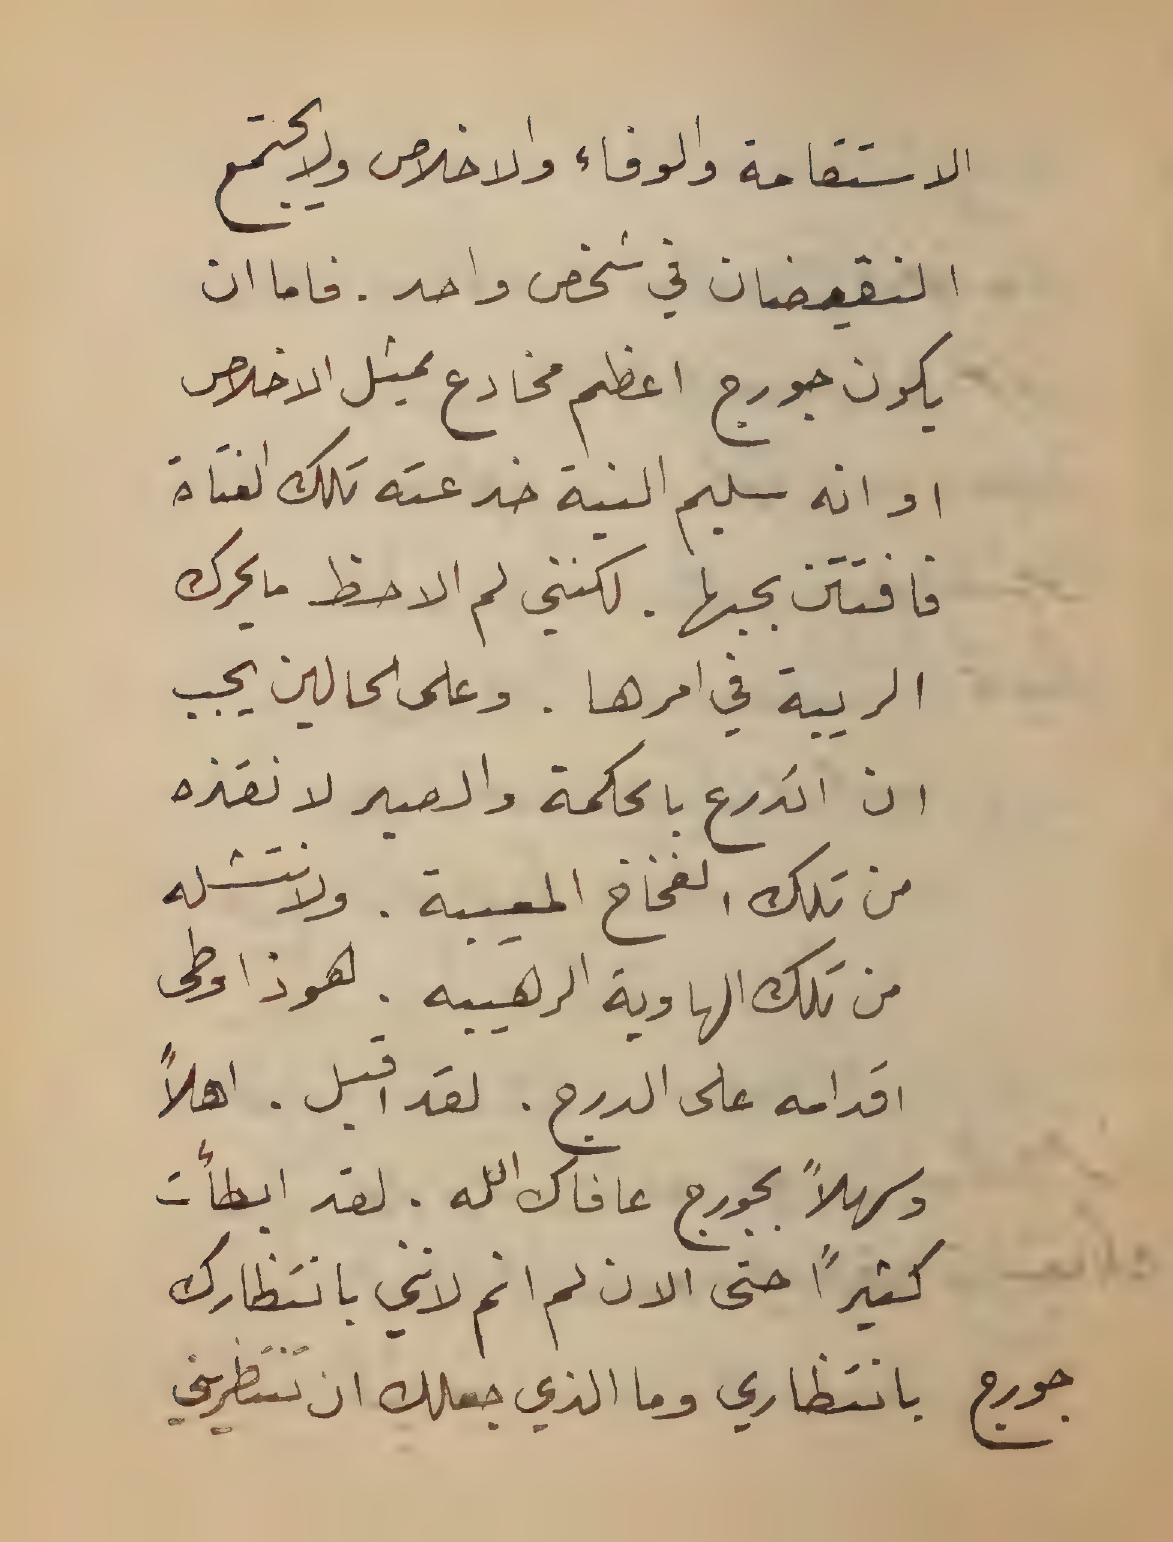 الاستقامة والوفاء والاخلاص ولا يجتمع
النقيضان في شخص واحد . فاما ان
يكون جورج اعظم مخادع يمثل الاخلاص
او انه سليم النية خدعته تلك الفتاة
فافتتن بحبها . لكنني لم الاحظ ما يحرك
الريبة في امرها . وعلى الحالين يجب
ان اتدرع بالحكمة والصبر لانقذه
من تلك الفخاخ المعيبة . ولانتشله
من تلك الهاوية الرهيبه . هوذا وطى
اقدامه على الدرج . لقد اقبل . اهلاً
وسهلاً بجورج عافاك الله . لقد ابطأت
كثيراً حتى الان لم انم لانني بانتظارك
جورج بانتظاري وما الذي جعلك ان تنتظريني